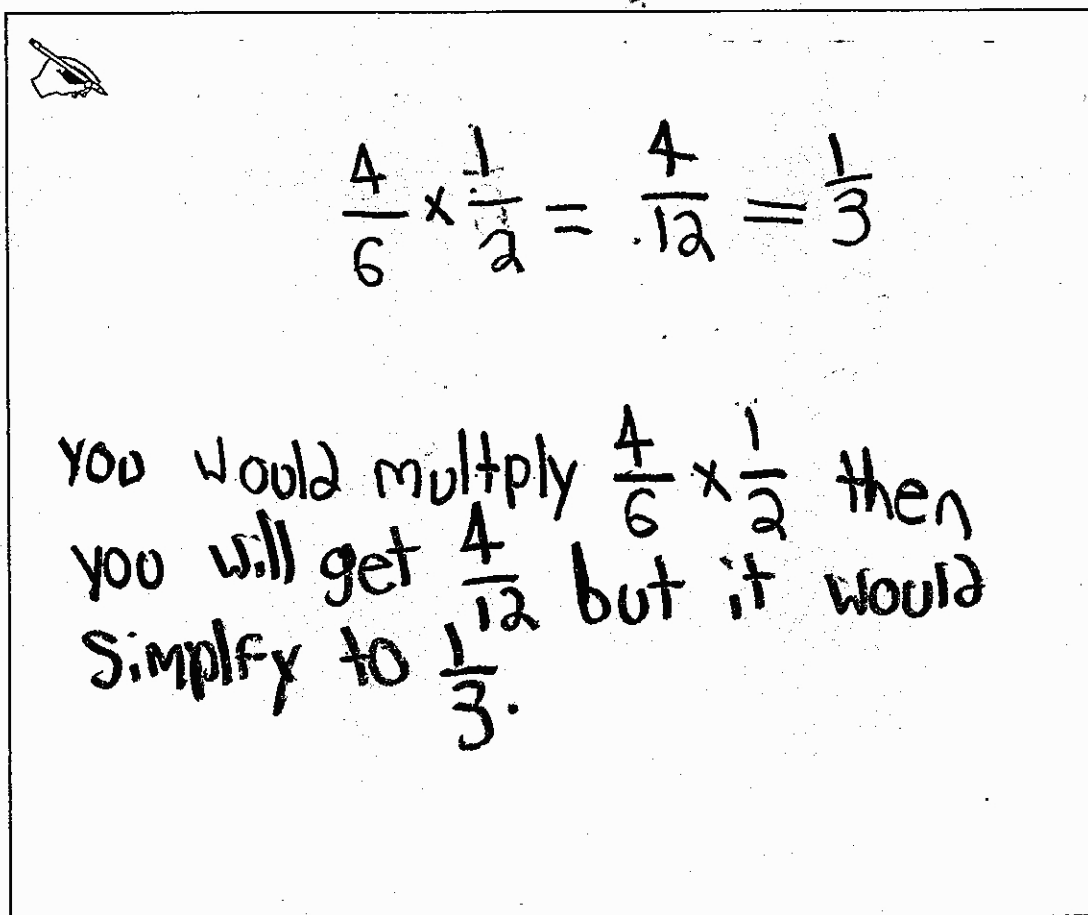 4/6 x 1/2 = 4/12 = 1/3
you would multply 4/6 x 1/2 then
you will get 4/12 but it would
Simplfy to 1/3.